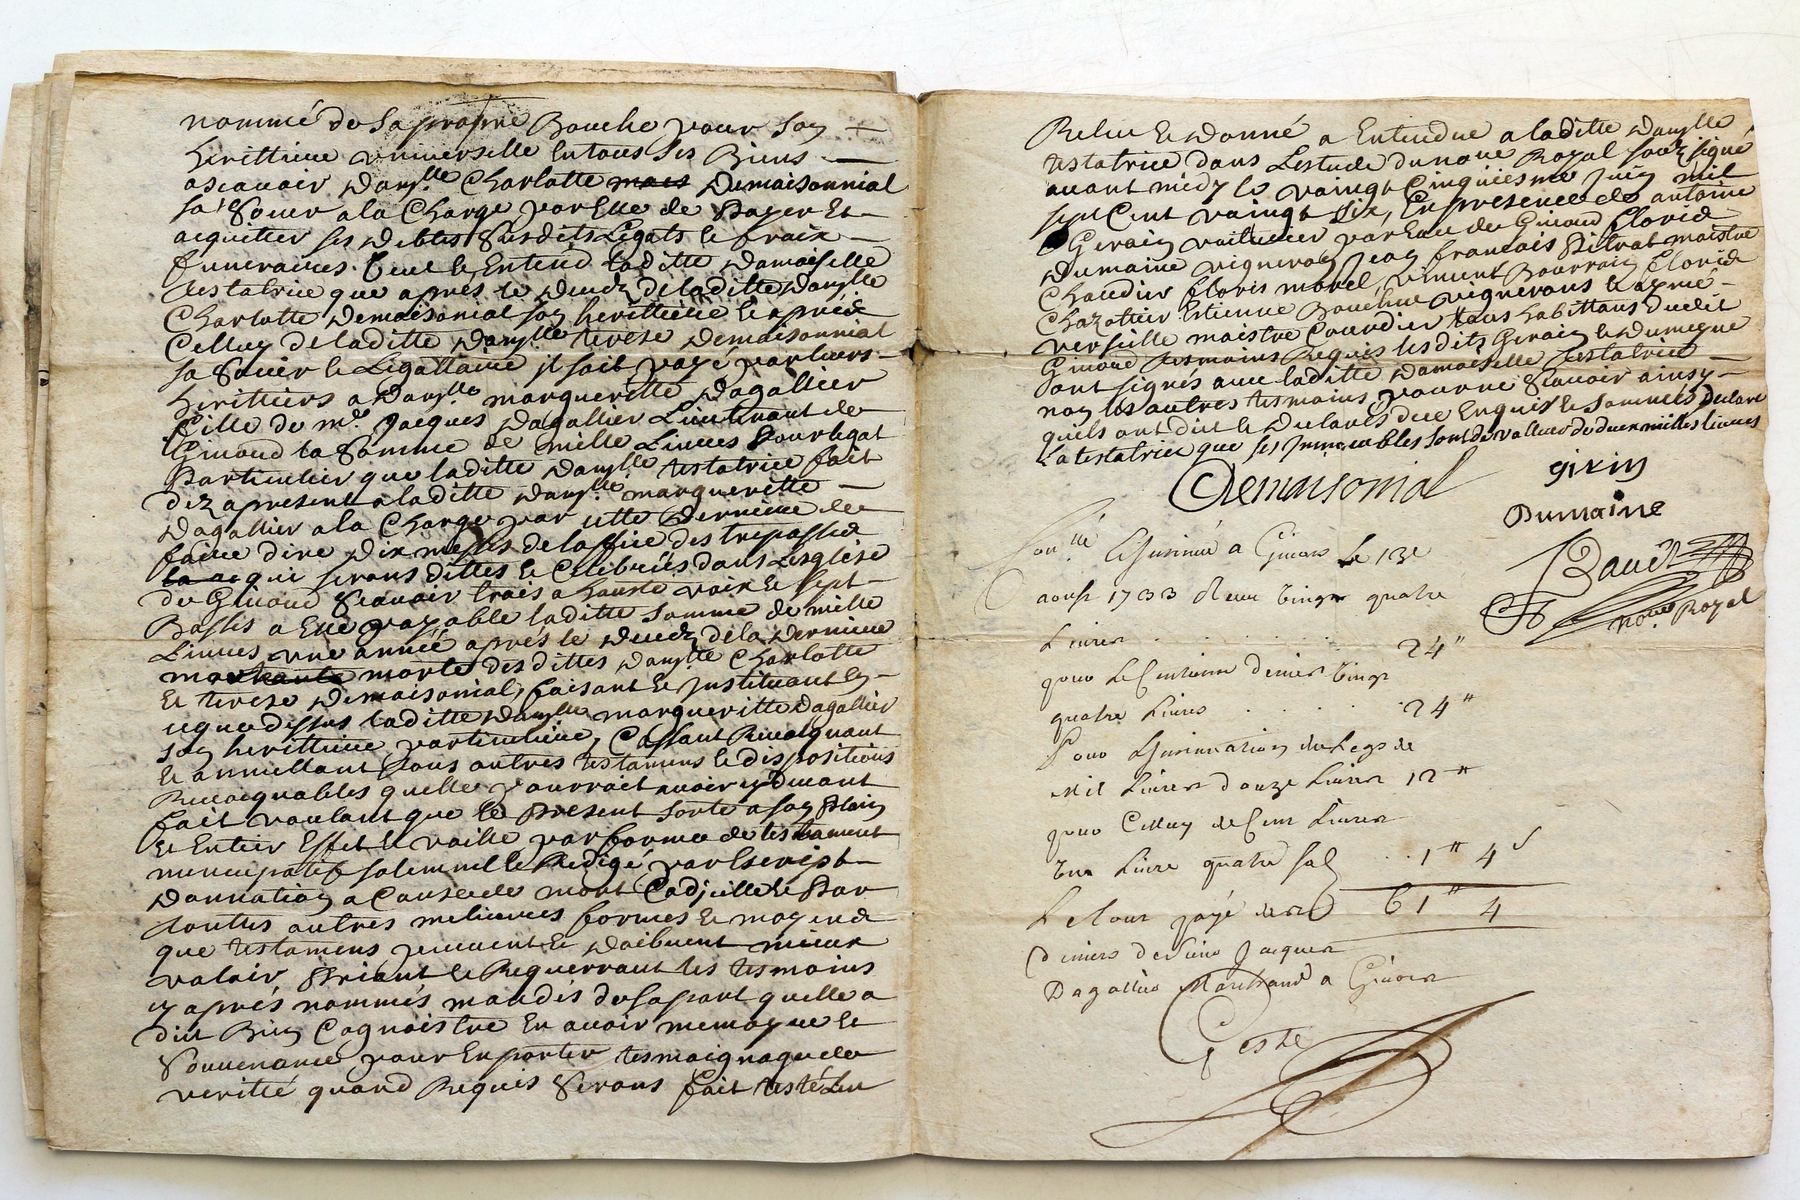 nommé de sa propre Bouche pour son
herittiere universelle en tous ses Biens
ascavoir damlle Charlotte Demaisonnial
sa Soeur a la Charge par Elle de Payer Et
acquitter ses debtes susdits Legats le fraix
funeraires. Veut le Entend laditte damoiselle
testatrice que apres le deces de laditte damlle
Charlotte Demaisonial son herittiere le apréz
Celluy de laditte damlle terese demaisonnial
sa Soeur le Legattaire il soit payé par leurs
herittiers a damlle margueritte dagallier
fille de mre Jacques dagallier Lieutenant de
Givord la Somme de mille Livres Pour legat
Particulier que laditte damlle testatrice fait
dez apresent a laditte damlle marguerritte
dagallier a la Charge par cette derniere de
faire dire dix messes de loffice des trepassés
qui serons dittes le Celebrées dans Lesglise
de Givord Scavoir trois a haute voix le sept
Basses a Elle payable laditte somme de mille
Livres une année aprés le deces de la derniere
morte des dittes damlle Charlotte
le terese demaisonial, faisant le Instituant En
ce que dessus laditte damlle marguerite dagallier
son herittiere particuliere, Cassant Revocquant
le annullant tous autres testamens le dispositions
Revocquables quelle pourroit avoir cy devant
fait voulant que le Present sorte a son Plain
le Entier Effet le vaille par forme de testament
nuncupatif solemnel le Redigé par Escript
donnation a Cause de mort Codicille le Par
touttes autres melieures formes le moyens
que testamens peuvent le doibvent mieux
valoir, Priant le Requerrant les tesmoins
cy aprés nommés mandés de sa part quelle a
dit Bien Cognoistre En avoir memoyre le
Souvenance pour En porter tesmoignage de
veritté quand Requis Serons fait testé Leu
Releu le donné a Entendre a laditte damlle
testatrice dans Lestude du nore Royal soubsigné
avant midy le vaingt Cinquiesme Juin mil
sept Cent vaingt six, En presence de antoine
Girain voiturier par Eau de Givord Clovis
dumaine vigneron Jean francois Pitrat maistre
Chaudier Cloris morel, Clement Bourrin Clovis
Chazottier Estienne Bouchu vignerons
verseille maistre Courdier tous habittans dudit
Givord tesmoins Requis lesdits Girain le dumayne
ont signés avec laditte damoiselle testatrice
non les autres tesmoins pour ne Scavoir ainsy
quils ont dit le declaré de ce Enquis le sommés declare
La testatrice que ses Immeubles sont de valleur de deux milles livres
Demaisonial
girin
Dumaine
nore Royal
Conllé Et Insinué a Givors Le 13e
aoust 1733 Receu vingt quatre
Livres . . . . . . . 24"
pour Le Centieme denier vingt
quatre Livres . . . . . 24"
Pour Linsinuation du Legs de
Mil Livres douze Livres 12"
pour Celluy de Cent Livres
une Livre quatre sols . . 1" 4s
Le tout payé des 61" 4
deniers de Sieur Jacques
Dagallier Marchand a Givors